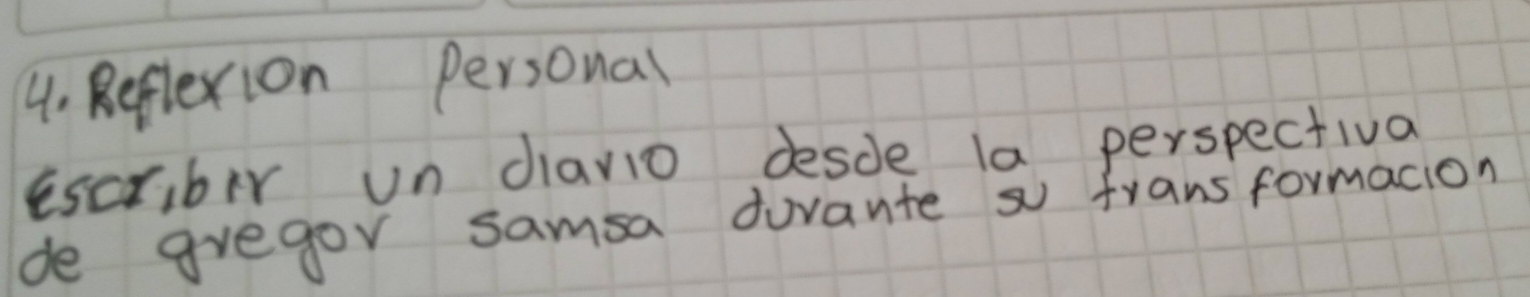 4. Reflexion Personal
Escribir un diario desde la perspectiva
de gregor samsa durante su transformacion